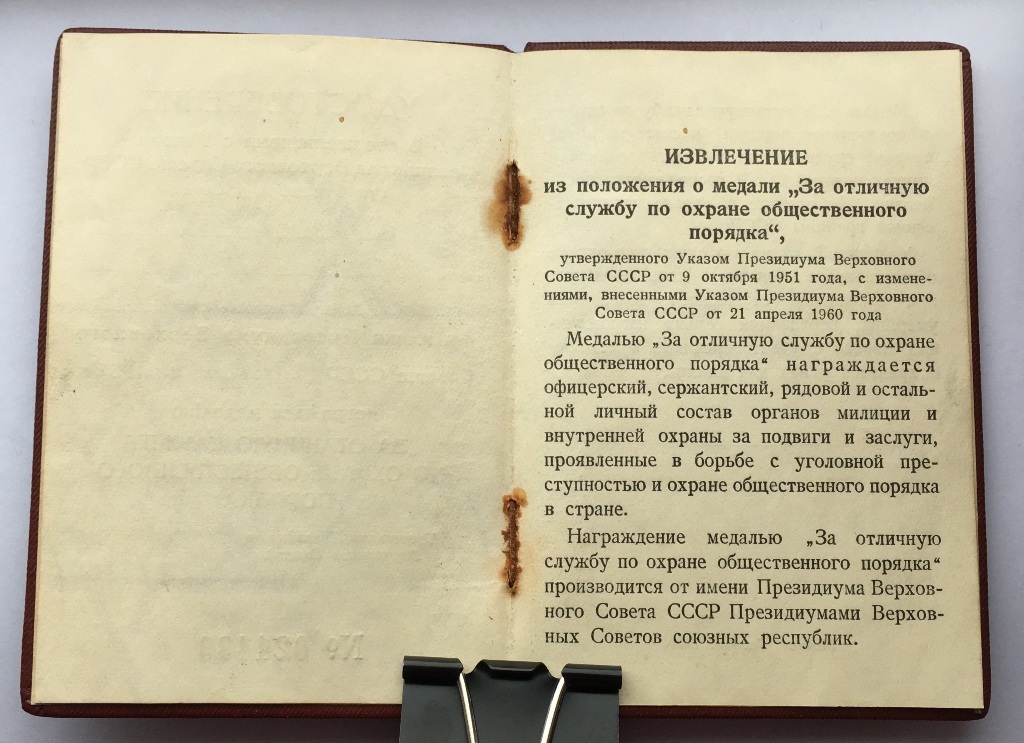 ИЗВЛЕЧЕНИЕ
из положения о медали „За отличную
службу по охране общественного
порядка“,
утвержденного Указом Президиума Верховного
Совета СССР от 9 октября 1951 года, с измене-
ниями, внесенными Указом Президиума Верховного
Совета СССР от 21 апреля 1960 года
Медалью „За отличную службу по охране
общественного порядка“ награждается
офицерский, сержантский, рядовой и осталь-
ной личный состав органов милиции и
внутренней охраны за подвиги и заслуги,
проявленные в борьбе с уголовной пре-
ступностью и охране общественного порядка
в стране.
Награждение медалью „За отличную
службу по охране общественного порядка“
производится от имени Президиума Верхов-
ного Совета СССР Президиумами Верхов-
ных Советов союзных республик.